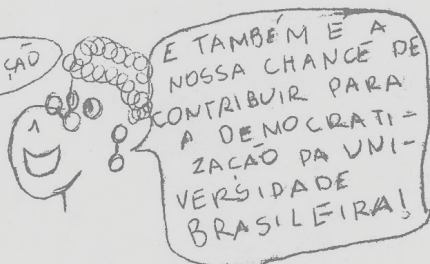 ÇÃO
E TAMBÉM É A
NOSSA CHANCE DE
CONTRIBUIR PARA
A DEMOCRATI-
ZAÇÃO DA UNI-
VERSIDADE
BRASILEIRA!